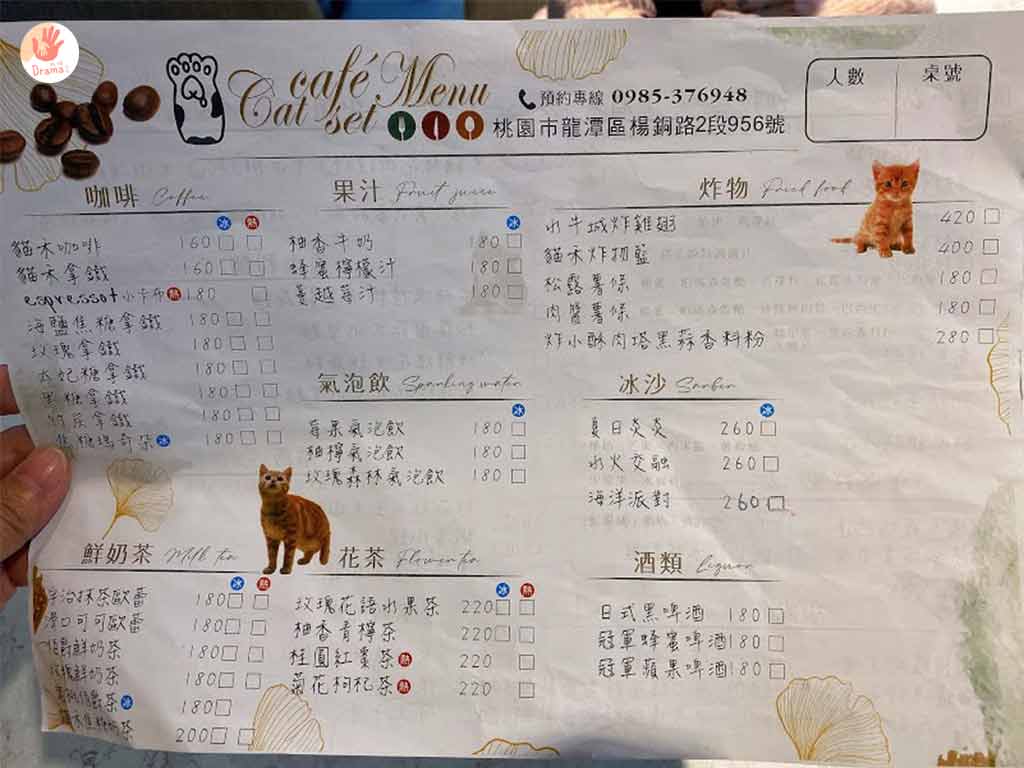 Drama
café Menu
Cat set
預約專線 0985-376948
桃園市龍潭區楊銅路2段956號
人數 桌號
咖啡 Coffee
冰 熱
貓禾咖啡 160
貓禾拿鐵 160
espresso+小卡布 熱 180
海鹽焦糖拿鐵 180
玫瑰拿鐵 180
太妃糖拿鐵 180
黑糖拿鐵 180
拿鐵 180
焦糖瑪奇朵 冰 180
果汁 Fruit juice
冰
柚香牛奶 180
蜂蜜檸檬汁 180
蔓越莓汁 180
炸物 Fried food
水牛城炸雞翅 420
貓禾炸物籃 400
松露薯條 180
肉醬薯條 180
炸小酥肉塔黑蒜香料粉 280
氣泡飲 Sparkling water
冰
莓果氣泡飲 180
柚檸氣泡飲 180
玫瑰森林氣泡飲 180
冰沙
冰
夏日炎炎 260
水火交融 260
海洋派對 260
鮮奶茶 Milk tea
冰 熱
宇治抹茶歐蕾 180
港口可可歐蕾 180
伯爵鮮奶茶 180
玫瑰鮮奶茶 180
伯爵茶 冰 180
奶茶 200
花茶 Flower tea
冰 熱
玫瑰花語水果茶 220
柚香青檸茶 220
桂圓紅棗茶 熱 220
菊花枸杞茶 熱 220
酒類 Liquor
日式黑啤酒 180
冠軍蜂蜜啤酒 180
冠軍蘋果啤酒 180